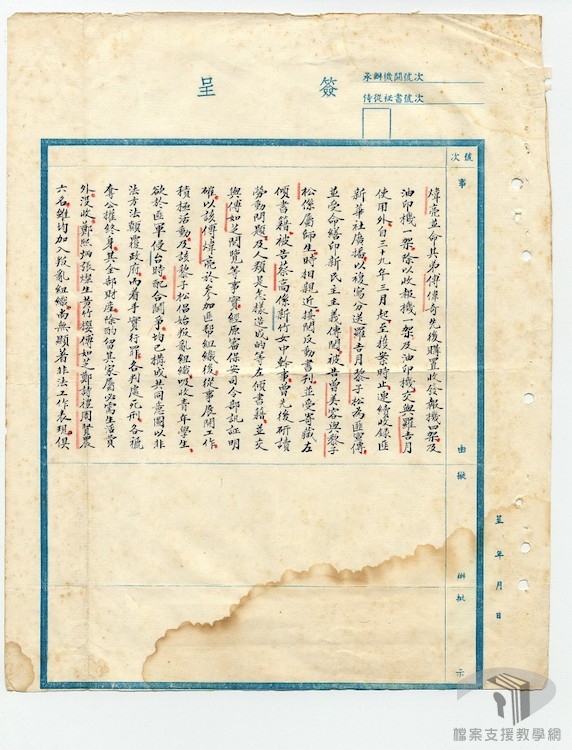 簽呈
承辦機關號次
侍從秘書號次
號次
事由
擬辦
批示
呈 年 月 日
煒亮並命其弟傅偉奇先後購置收發報機四架及
油印機一架除以收報機一架及油印機交與羅吉月
使用外自三十九年三月起至按案時止連續收錄匪
新華社廣播以複寫分送羅吉月黎子松及匪軍傳
並受命繕印新民主主義傳閱被告曾美容與黎子
松係屬師生時相親近接閱反動書刊並受寄藏左
傾書籍被告蔡高係新竹女中幹事曾先後研讀
勞動問題及人類是怎樣造成的等左傾書籍並交
與傅如芝閱覽等事實經原審保安司令部訊証明
確以該傅煒亮於參加匪幫組織後從事展開工作
積極活動及該黎子松倡始叛亂組織吸收青年學生
欲於匪軍侵台時配合鬪爭均已構成共同意圖以非
法方法顛覆政府而着手實行罪各判處死刑各褫
奪公權終身其全部財產除酌留其家屬必需生活費
外沒收鄭熙炳張燦生黃竹櫻傅如芝鄭詩禮周賢農
六名雖均加入叛亂組織尚無顯著非法工作表現俱
檔案支援教學網